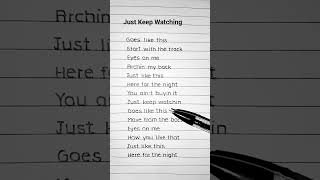 Just Keep Watching
Goes like this
Start with the track
Eyes on me
Archin my back
Just like this
Here for the night
You ain't buyin it
Just keep watchin
Goes like this
Move from the back
Eyes on me
How you like that
Just like this
Here for the night